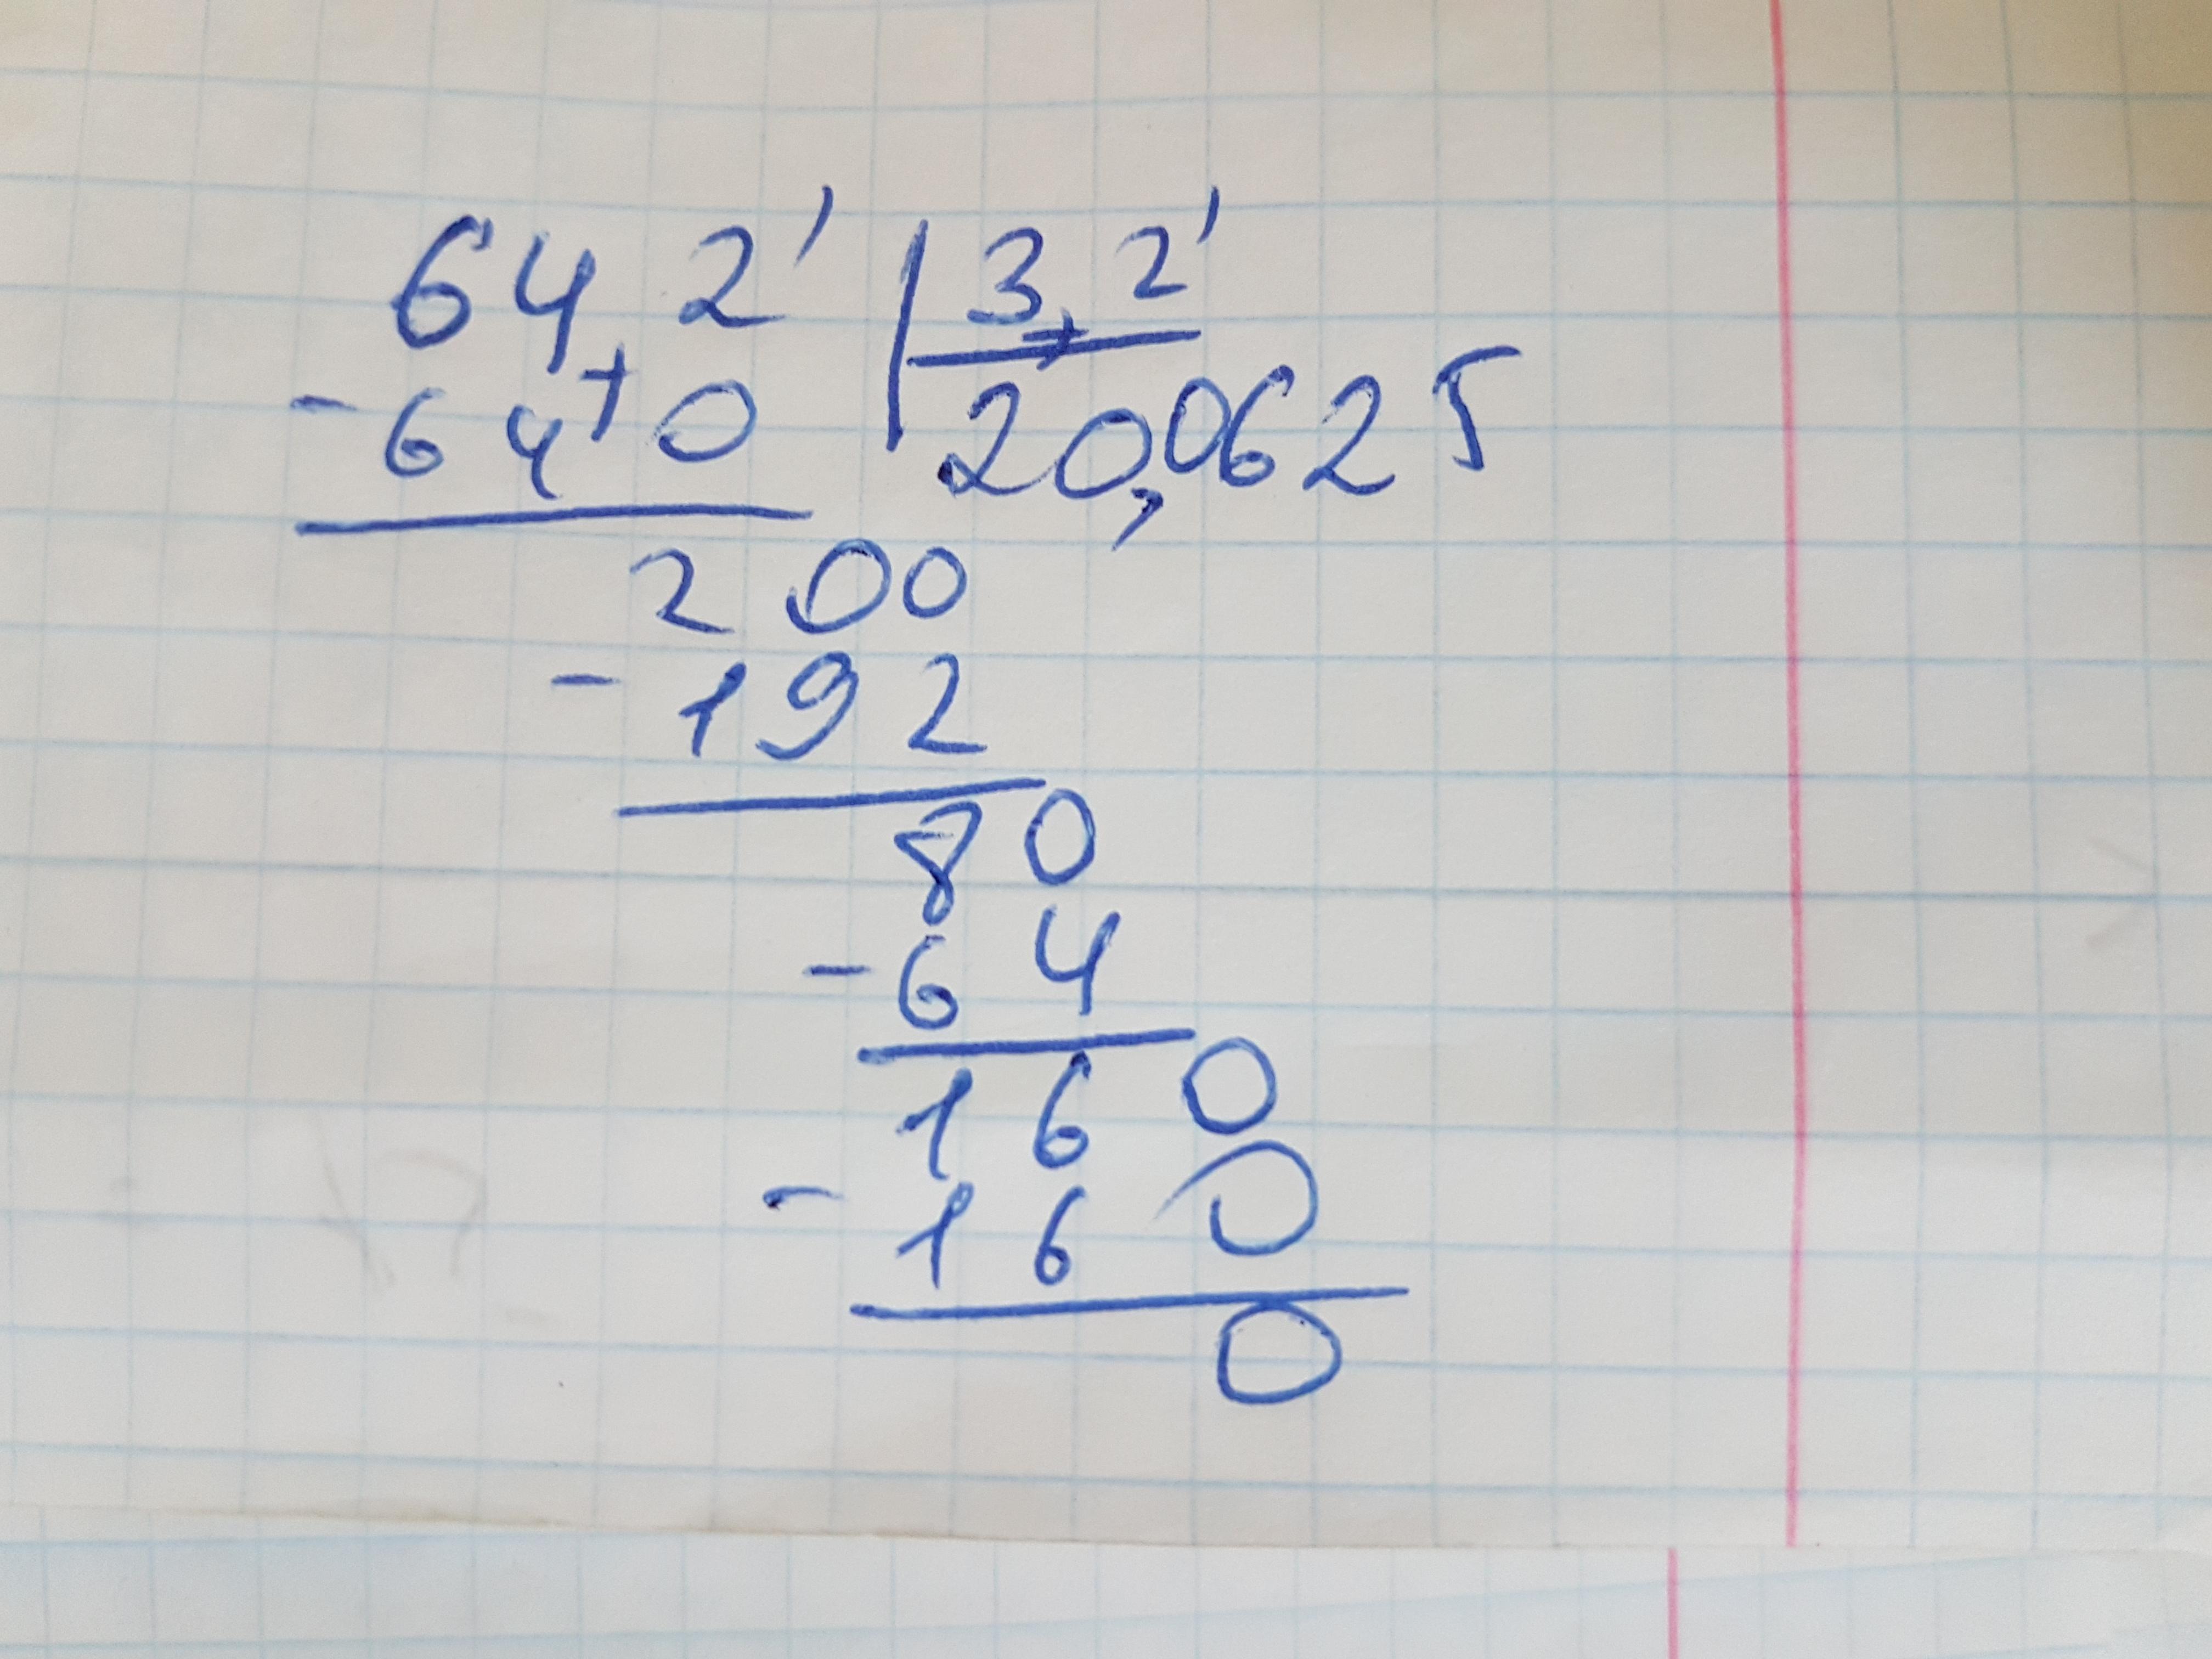 64,2' | 3,2'
- 640 | 20,0625
200
- 192
80
- 64
160
- 160
0